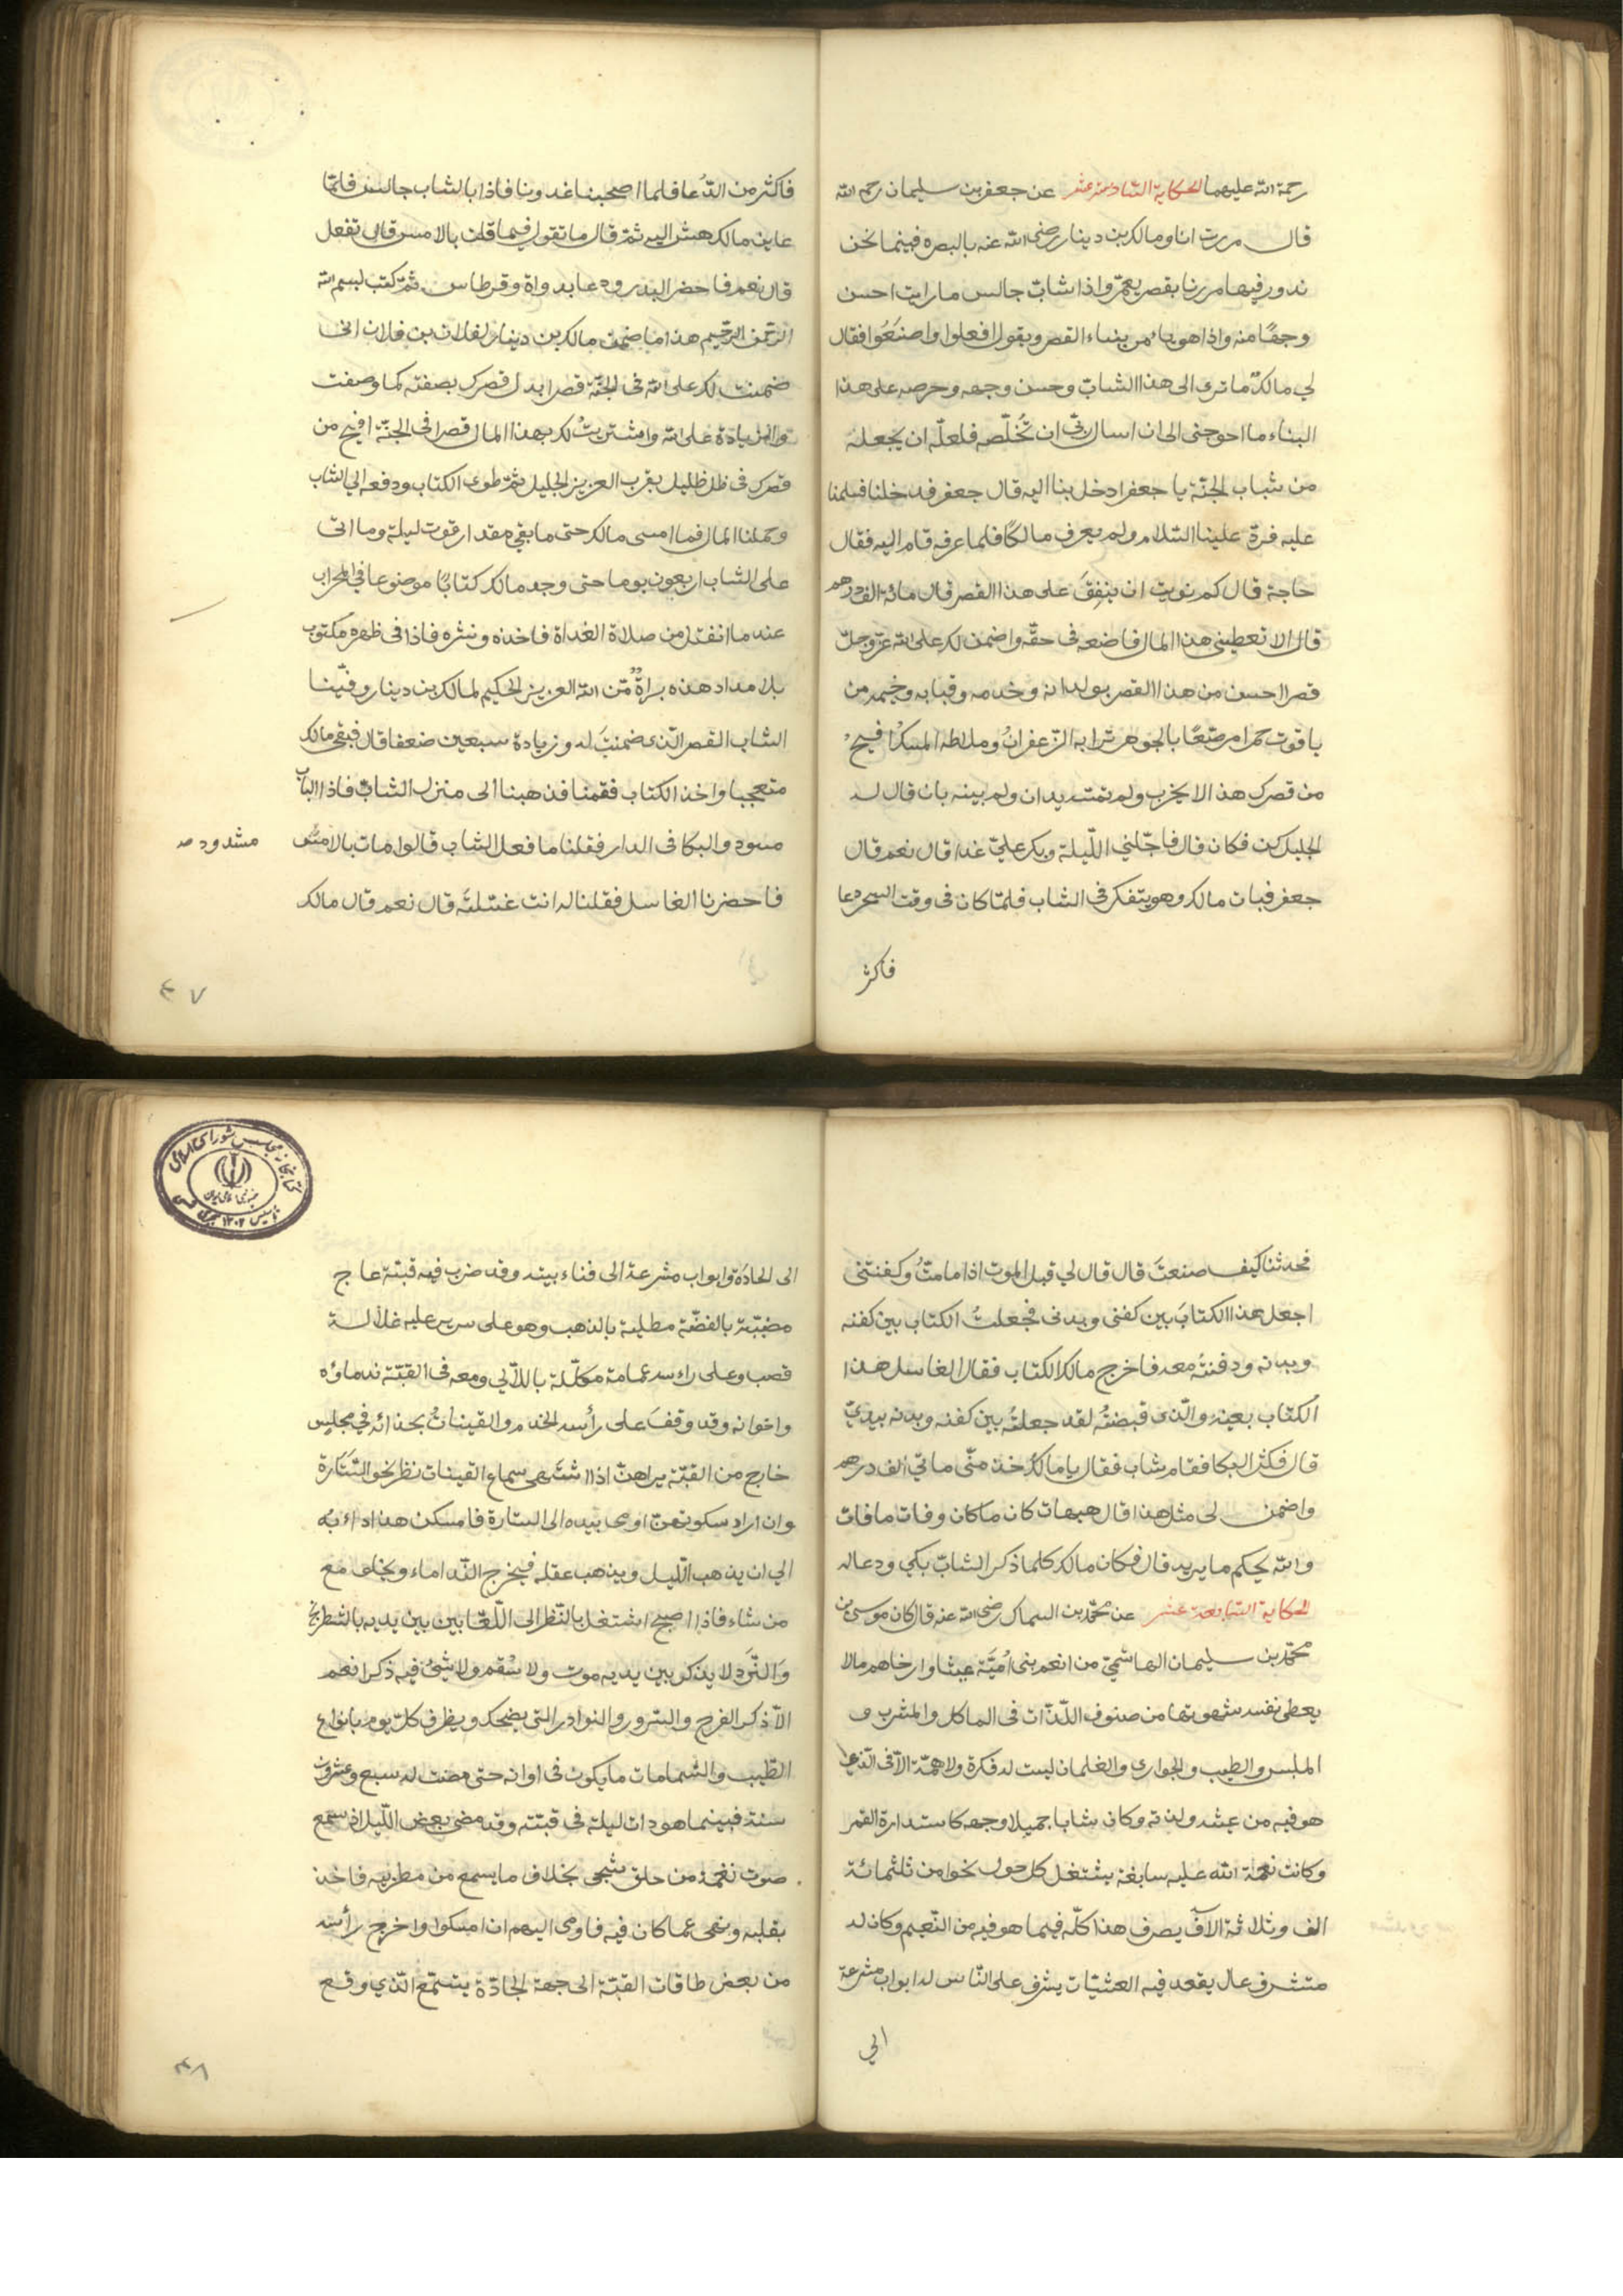 رحمة الله عليهما الحكاية السادسة عشر عن جعفر بن سليمان رحمه الله
قال مررت انا ومالك بن دينار رضي الله عنه بالبصره فبينما نحن
ندور فيها مررنا بقصر يعمر واذا شاب جالس ما رايت احسن
وجها منه واذا هو يامر ببناء القصر ويقول افعلوا واصنعوا فقال
لي مالك ما ترى الى هذا الشاب وحسن وجهه وحرصه على هذا
البناء ما احوجنى الى ان اسال ربي ان يخلصه فلعله ان يجعله
من شباب الجنة يا جعفر ادخل بنا اليه قال جعفر فدخلنا فسلمنا
عليه فرد علينا السلام ولم يعرف مالكا فلما عرفه قام اليه فقال
حاجة قال كم نويت ان ينفق على هذا القصر قال مائة الف درهم
قال الا تعطيني هذا المال فاضعه فى حقه واضمن لك على الله عز وجل
قصرا احسن من هذا القصر بولدانه وخدمه وقبابه وخيمه من
ياقوت حمرا مرصعا بالجوهر ترابه الزعفران وملاطه المسك افيح
من قصرك هذا لا يخرب ولم تمسه يدان ولم يبنه بان قال له
الجليل كن فكان قال فاجلني الليلة وبكر علي غدا قال نعم قال
جعفر فبات مالك وهو يتفكر في الشاب فلما كان فى وقت السحر دعا
فاكثر
فاكثر من الدعا فلما اصبحنا غدونا فاذا بالشاب جالس فلما
عاين مالك هش اليه ثم قال ما تقول فيما قلت بالامس قال تفعل
قال نعم فاحضر البدر ودعا بدواة وقرطاس ثم كتب بسم الله
الرحمن الرحيم هذا ما ضمن مالك بن دينار لفلان بن فلان انى
ضمنت لك على الله فى الجنة قصرا بدل قصرك بصفته كما وصفت
والزيادة على الله واشتريت لك بهذا المال قصرا فى الجنة افيح من
قصرك فى ظل ظليل بقرب العزيز الجليل ثم طوى الكتاب ودفعه الي الشاب
وحملنا المال فما امسى مالك حتى ما بقي مقدار قوت ليلة وما اتى
على الشاب اربعون يوما حتى وجد مالك كتابا موضوعا في المحراب
عند ما انفتل من صلاة الغداة فاخذه ونشره فاذا فى ظهره مكتوب
بلا مداد هذه براة من الله العزيز الحكيم لمالك بن دينار وفينا
الشاب القصر الذى ضمنت له وزيادة سبعين ضعفا قال فبقي مالك
متعجبا واخذ الكتاب فقمنا فذهبنا الى منزل الشاب فاذا الباب
مسود والبكا فى الدار فقلنا ما فعل الشاب قالوا مات بالامس
مشدود صه
فاحضرنا الغاسل فقلنا له انت غسلته قال نعم قال مالك
٤٧
فحدثنا كيف صنعت قال قال لي قبل الموت اذا ما مت وكفنتنى
اجعل هذا الكتاب بين كفنى وبدنى فجعلت الكتاب بين كفنه
وبدنه ودفنته معه فاخرج مالك الكتاب فقال الغاسل هذا
الكتاب بعينه والذى قبضه لقد جعلته بين كفنه وبدنه بيدي
قال فكثر البكا فقام شاب فقال يا مالك خذ منى ماتي الف درهم
واضمن لى مثل هذا قال هيهات كان ما كان وفات ما فات
والله يحكم ما يريد قال فكان مالك كلما ذكر الشاب بكي ودعا له
الحكاية السابعة عشر عن محمد بن السماك رضى الله عنه قال كان موسى بن
محمد بن سليمان الهاشمي من انعم بنى امية عيشا وارخاهم مالا
يعطى نفسه شهوتها من صنوف اللذات فى الماكل والمشرب و
الملبس والطيب والجوارى والغلمان ليست له فكرة ولا همة الا فى الذى
هو فيه من عيشه ولذته وكان شابا جميلا وجهه كاستدارة القمر
وكانت نعمة الله عليه سابغة يشتغل كل حول نحوا من ثلثمائة
الف وثلاثة الآف يصرف هذا كله فيما هو فيه من النعيم وكان له
متشرف عال يقعد فيه العشيات يشرف على الناس له ابواب مشرعة
الي
الى الجادة وابواب مشرعة الى فناء بيته وقد ضرب فيه قبته عاج
مضببة بالفضة مطلية بالذهب وهو على سرير عليه غلالة
قصب وعلى راسه عمامة مكللة باللآلي ومعه فى القبة ندماؤه
واخوانه وقد وقف على رأسه الخدم والقينات بحذائه في مجلس
خارج من القبة يراهن اذا اشتهى سماع القينات نظر نحو الستارة
وان اراد سكوتهن اومى بيده الى الستارة فامسكن هذا دابه
الي ان يذهب الليل ويذهب عقله فيخرج الندماء ويخلى مع
من شاء فاذا اصبح اشتغل بالنظر الى اللعابين بين يديه بالشطرنج
والنرد لا يذكر بين يديه موت ولا سقم ولا شئ فيه ذكر انعم
الا ذكر الفرح والسرور والنوادر التى يضحك ويطرف كل يوم بانواع
الطيب والشمامات ما يكون فى اوانه حتى مضت له سبع وعشرون
سنة فبينما هو ذات ليلة فى قبته وقد مضى بعض الليل اذ سمع
صوت نغمة من حلق شجى بخلاف ما يسمع من مطربيه فاخذ
بقلبه ونهى عما كان فيه فاومى اليهم ان امسكوا واخرج رأسه
من بعض طاقات القبة الى جهة الجادة يستمع الذي وقع
٤٨